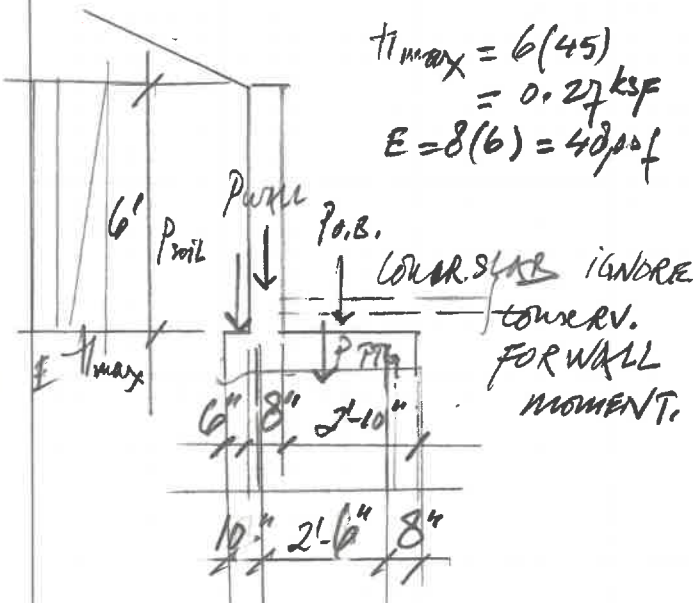 Hmax = 6(45)
= 0.27 ksf
E = 8(6) = 48psf
6'
Psoil
Pwall
Po.B.
CONCR. SLAB IGNORE
CONSERV.
FOR WALL
MOMENT.
E Hmax
PFTG
6" 8" 2'-10"
10" 2'-6" 8"